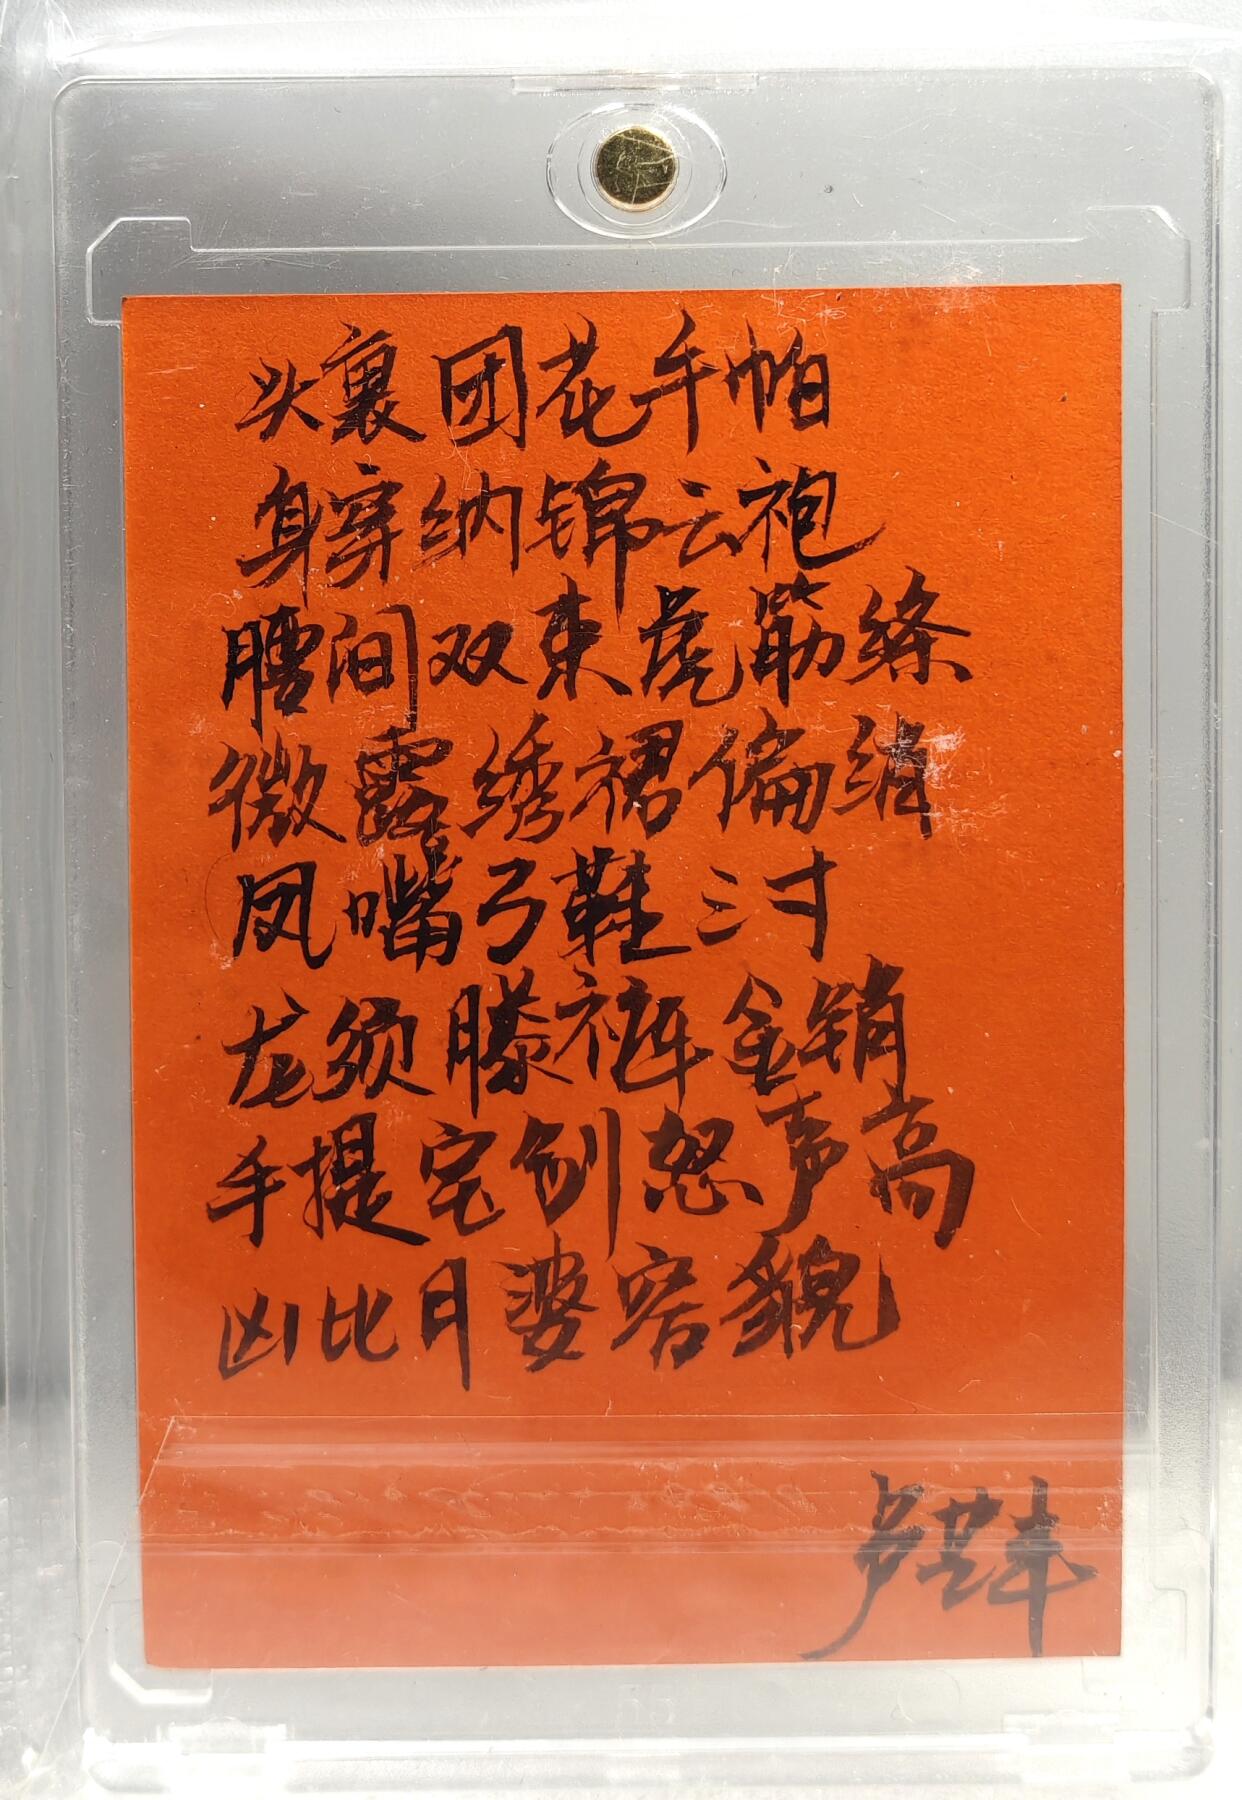 头裹团花手帕
身穿纳锦云袍
腰间双束虎筋绦
微露绣裙偏绡
凤嘴弓鞋三寸
龙须膝裤金销
手提宝剑怒声高
凶比月婆容貌